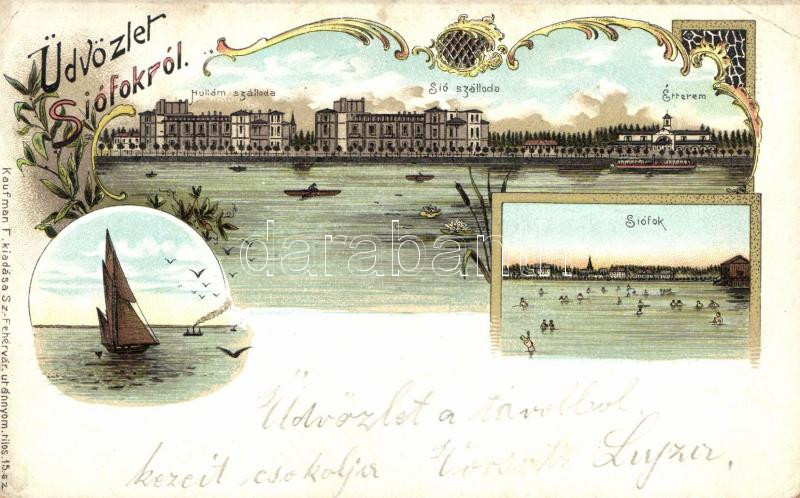 Üdvözlet
Siófokról.
Hullám szálloda
Sió szálloda
Étterem
Siófok
darabanth
Üdvözlet a távolból.
kezeit csokolja Lujza,
Kaufman F. kiadása Sz.-Fehérvár, utánnyom. tilos. 15. sz.